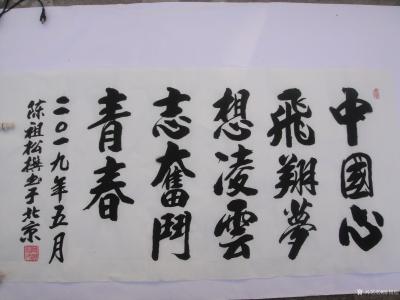 中國心
飛翔夢
想凌雲
志奮鬥
青春
二〇一九年五月
陈祖松撰書于北京